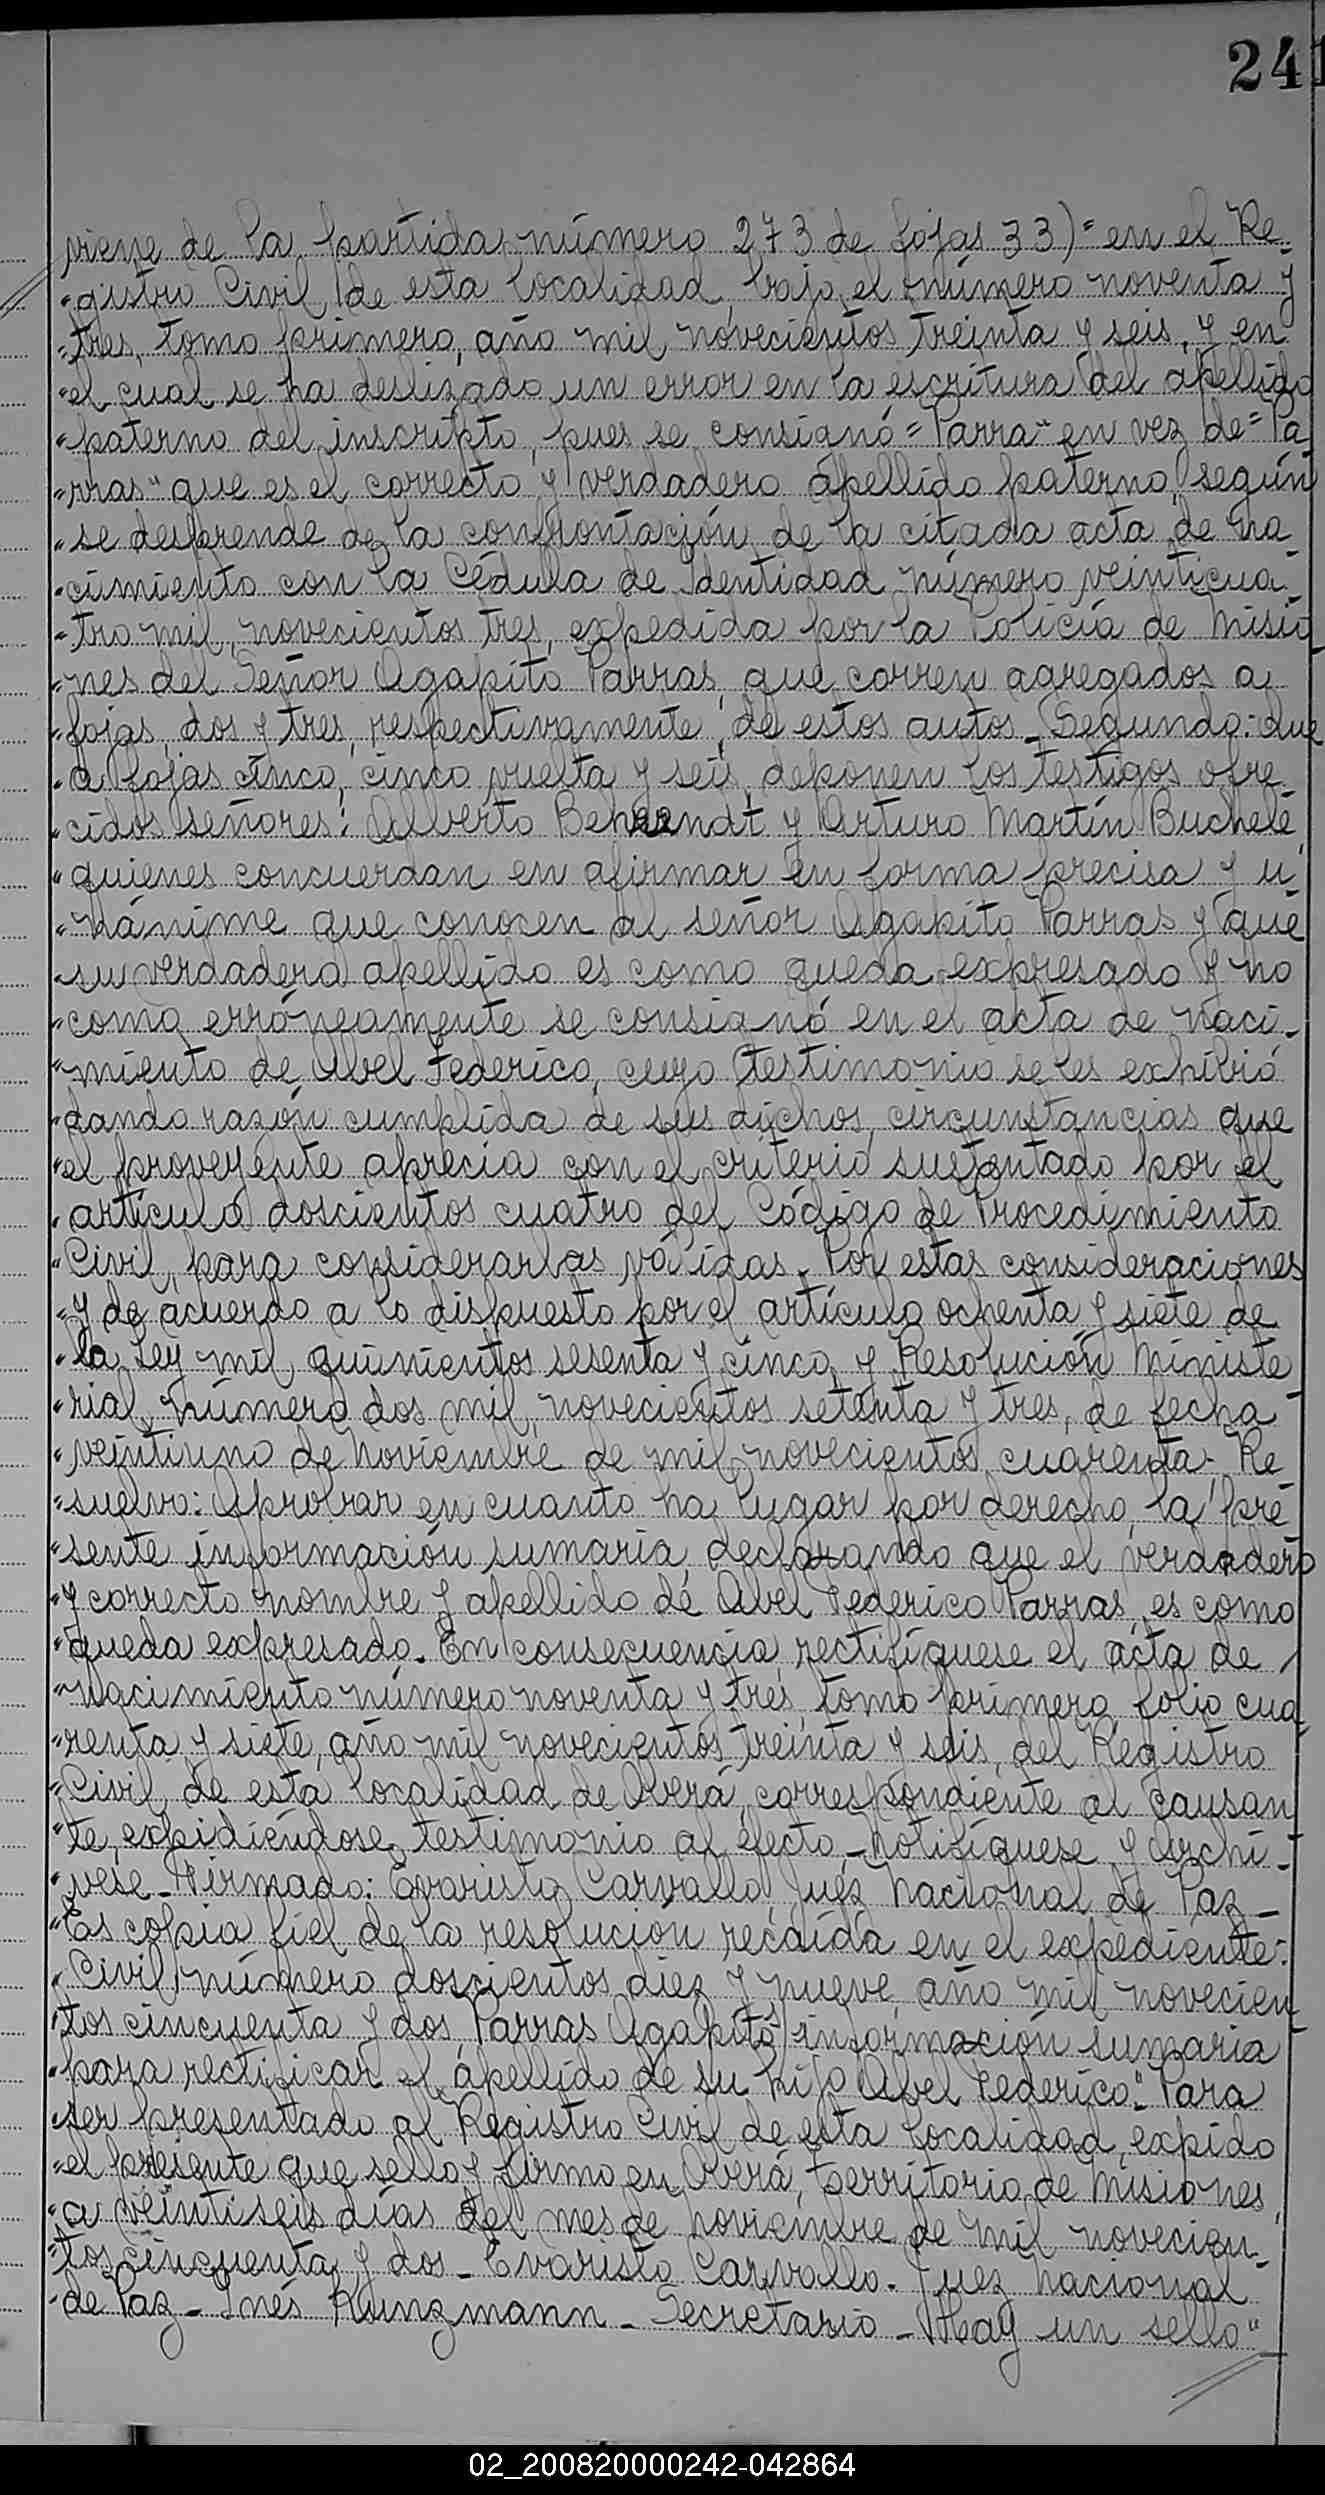 241
viene de la partida número 273 de fojas 33)= en el Re-
"gistro Civil de esta localidad, bajo el número noventa y
"tres, tomo primero, año mil novecientos treinta y seis, y en
"el cual se ha deslizado un error en la escritura del apellido
"paterno del inscripto, pues se consignó "Parra" en vez de "Pa
"rras" que es el correcto y verdadero apellido paterno, según
"se desprende de la confrontación de la citada acta de na-
"cimiento con la Cédula de Identidad número veinticua-
"tro mil novecientos tres, expedida por la Policía de Misio-
"nes del Señor Agapito Parras, que corren agregados a
"fojas dos y tres, respectivamente, de estos autos.- Segundo: Que
"a fojas cinco, cinco vuelta y seis, deponen los testigos ofre-
"cidos señores: Alberto Behrendt y Arturo Martín Buchele,
"quienes concuerdan en afirmar en forma precisa y u-
"nánime que conocen al señor Agapito Parras y que
"su verdadero apellido es como queda expresado y no
"como erróneamente se consignó en el acta de naci-
"miento de Abel Federico, cuyo testimonio se les exhibió
"dando razón cumplida de sus dichos, circunstancias que
"el proveyente aprecia con el criterio sustentado por el
"artículo doscientos cuatro del Código de Procedimiento
"Civil, para considerarlas válidas. Por estas consideraciones
"y de acuerdo a lo dispuesto por el artículo ochenta y siete de
"la Ley mil quinientos sesenta y cinco, y Resolución Ministe-
"rial número dos mil novecientos setenta y tres, de fecha
"veintiuno de Noviembre de mil novecientos cuarenta- Re-
"suelvo: Aprobar en cuanto ha lugar por derecho, la pre-
"sente información sumaria, declarando que el verdadero
"y correcto nombre y apellido de Abel Federico Parras, es como
"queda expresado. En consecuencia, rectifíquese el acta de
"nacimiento número noventa y tres, tomo primero, folio cua-
"renta y siete, año mil novecientos treinta y seis, del Registro
"Civil de esta localidad de Oberá, correspondiente al causan-
"te, expidiéndose testimonio al efecto.- Notifíquese y Archí-
"vese.- Firmado: Evaristo Carvallo, Juez Nacional de Paz-
"Es copia fiel de la resolución recaída en el expediente:
"Civil número doscientos diez y nueve, año mil novecien-
"tos cincuenta y dos, Parras Agapito, información sumaria
"para rectificar el apellido de su hijo Abel Federico". Para
"ser presentado al Registro Civil de esta localidad, expido
"el presente que sello y firmo en Oberá, territorio de Misiones,
"a veintiseis días del mes de noviembre de mil novecien-
"tos cincuenta y dos - Evaristo Carvallo. Juez Nacional
"de Paz - Inés Kunzmann - Secretario - Hay un sello"
02_200820000242-042864